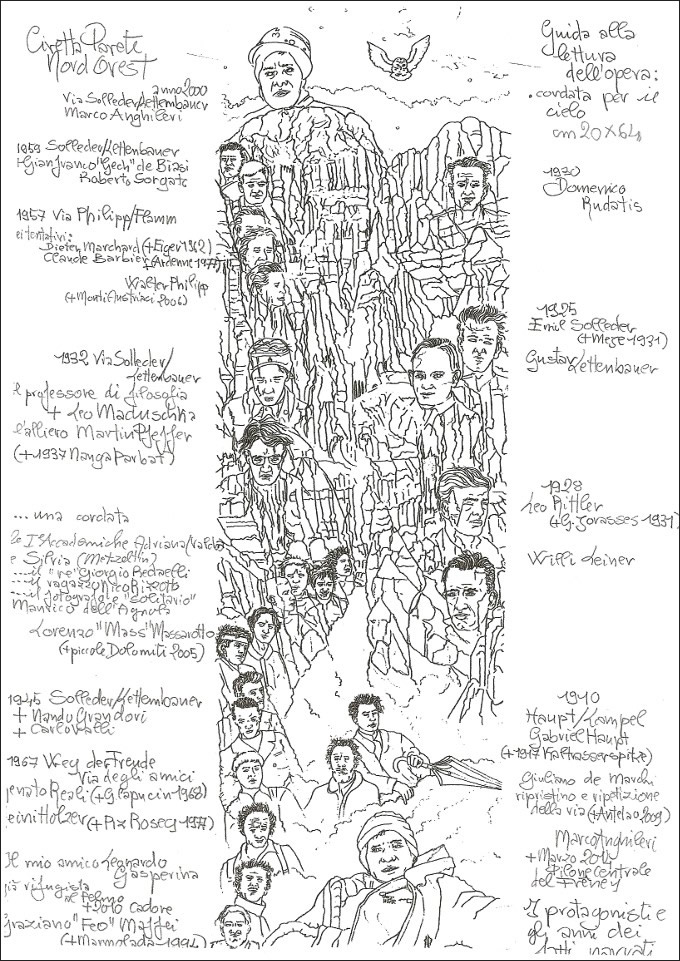 Civetta Parete
Nord Ovest
anno 2000
Via Solleder/Lettenbauer
Marco Anghileri
1959 Solleder/Lettenbauer
+Gianfranco "Gech" de Biasi
Roberto Sorgato
1957 Via Philipp/Flamm
ei tentativi:
Dieter Marchard (+Eiger 1962)
Claude Barbier (+Ardenne 1977)
Walter Philipp
(+Monti Austriaci 2006)
1932 Via Solleder/
Lettenbauer
il professore di filosofia
+ Leo Maduschka
l'allievo Martin Pfeffer
(+1937 Nanga Parbat)
... una cordata
le I Accademiche Adriana Valdo
e Silvia (Metzeltin)
... il "re" Giorgio Redaelli
... il ragazzo Nico
... il fotografo e "solitario"
Manrico dell'Agnola
Lorenzo "Mass" Massarotto
(+piccole Dolomiti 2005)
1945 Solleder/Lettenbauer
+ Nando Grandori
+ Carlo Valli
1967 Weg der Freude
Via degli amici
renato Reali (+G Capucin 1968)
e ini Holzer (+Piz Roseg 1977)
Il mio amico Legnardo
Gasperina
già rifugista
al Pelmo
+2010 Cadore
graziano "Feo" Maffei
(+Marmolada 1994)
Guida alla
lettura
dell'opera:
.cordata per il
cielo
cm 20x64
1930
Domenico
Rudatis
1925
Emil Solleder
(+Meije 1931)
Gustav Lettenbauer
1928
Leo Rittler
(+G. Jorasses 1931)
Willi Leiner
1910
Haupt/Lömpel
Gabriel Haupt
(+1917 Kalkasserspitze)
Giuliano de Marchi
ripristino e ripetizione
della via (+Antelao 2009)
Marco Anghileri
+Marzo 2014
Pilone Centrale
del Freney
I protagonisti e
gli anni dei
fatti narrati